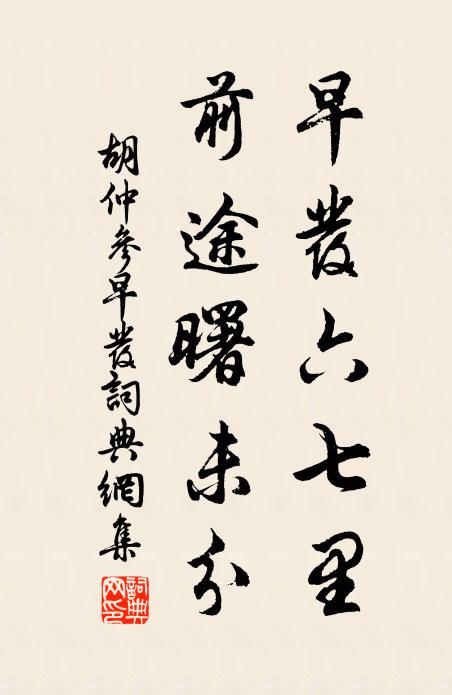 早發六七里
前途曙未分
胡仲參早發詞典網集
詞典網印